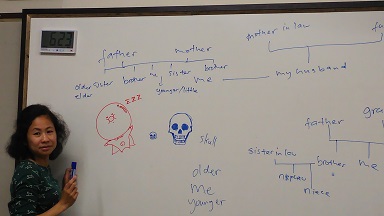 father mother
older sister brother me sister brother
elder younger/little
me my husband
mother in law
zzz
skull
older
me
younger
father
sister in law brother me
nephew
niece